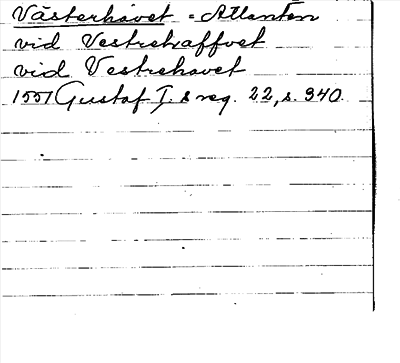 Västerhavet = Atlanten
vid Vestrehaffvet
vid Vestrehavet
1551 Gustaf I. s reg. 22, s. 340.